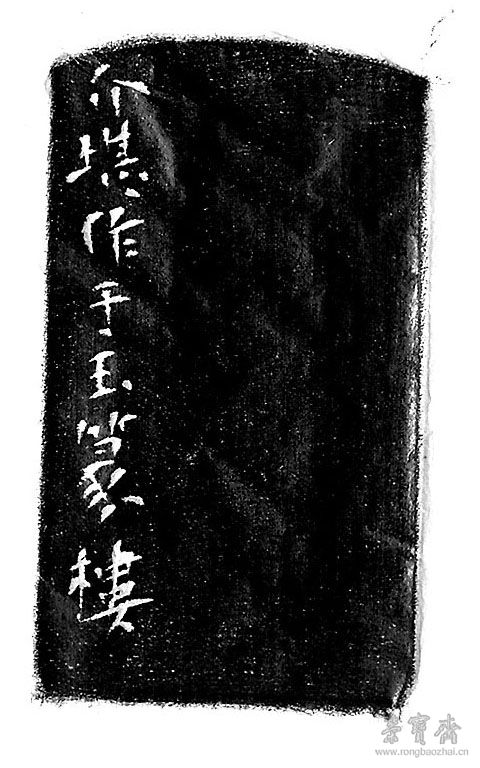 介堪作于玉篆樓
榮寶齋
www.rongbaozhai.cn